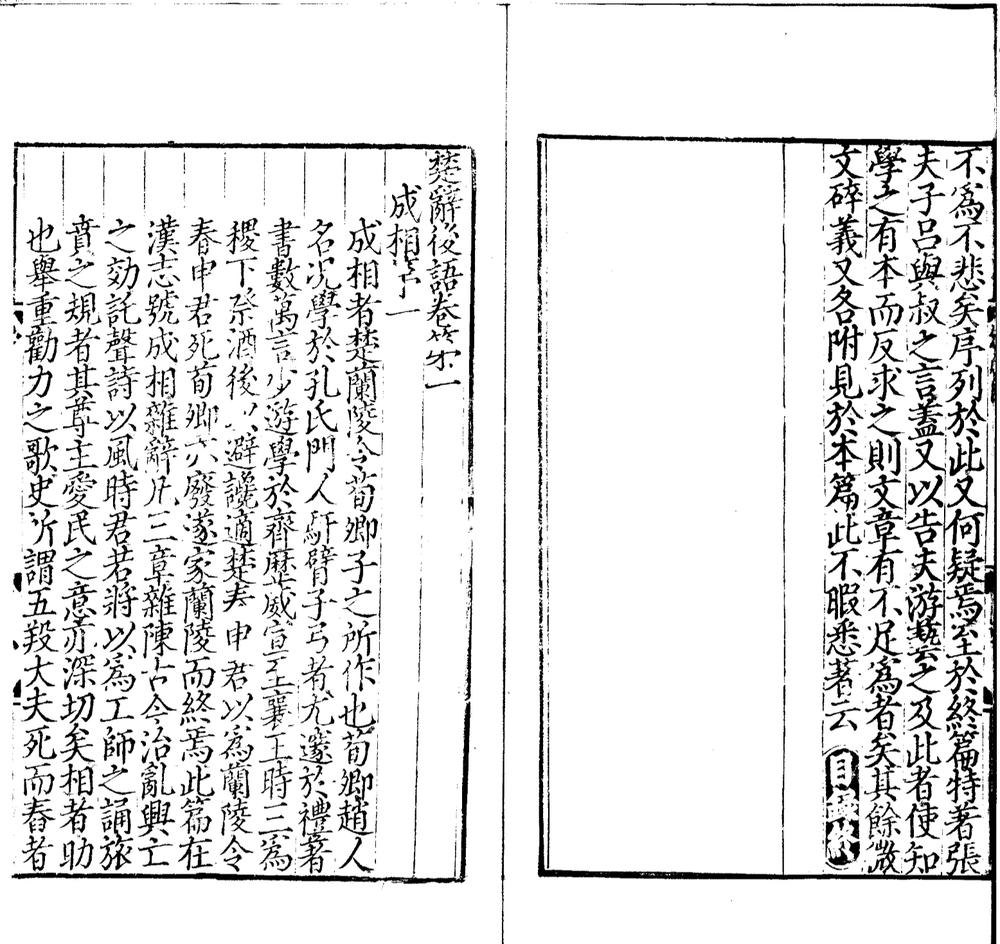 不爲不悲矣序列於此又何疑焉至於終篇特著張
夫子呂與叔之言蓋又以告夫游藝之及此者使知
學之有本而反求之則文章有不足爲者矣其餘微
文碎義又各附見於本篇此不暇悉著云 目録終
楚辭後語卷第一
成相第一
成相者楚蘭陵令荀卿子之所作也荀卿趙人
名况學於孔氏門人馯臂子弓者尤邃於禮著
書數萬言少遊學於齊歷威宣至襄王時三爲
稷下祭酒後以避讒適楚春申君以爲蘭陵令
春申君死荀卿亦廢遂家蘭陵而終焉此篇在
漢志號成相雜辭凡三章雜陳古今治亂興亡
之効託聲詩以風時君若將以爲工師之誦旅
賁之規者其尊主愛民之意亦深切矣相者助
也舉重勸力之歌史所謂五羖大夫死而舂者